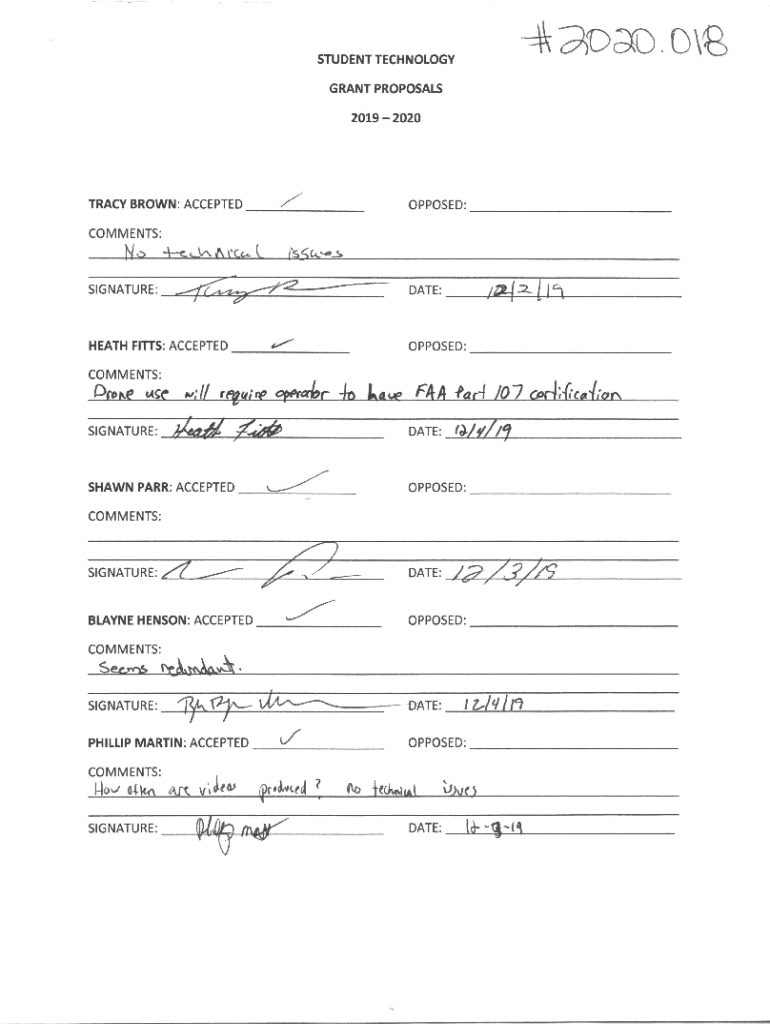 #2020.018
STUDENT TECHNOLOGY
GRANT PROPOSALS
2019 – 2020
TRACY BROWN: ACCEPTED ✓ OPPOSED:
COMMENTS:
No technical issues
SIGNATURE: DATE: 12/2/19
HEATH FITTS: ACCEPTED ✓ OPPOSED:
COMMENTS:
Drone use will require operator to have FAA Part 107 certification
SIGNATURE: Heath Fitts DATE: 12/4/19
SHAWN PARR: ACCEPTED ✓ OPPOSED:
COMMENTS:
SIGNATURE: DATE: 12/3/19
BLAYNE HENSON: ACCEPTED ✓ OPPOSED:
COMMENTS:
Seems redundant.
SIGNATURE: DATE: 12/4/19
PHILLIP MARTIN: ACCEPTED ✓ OPPOSED:
COMMENTS:
How often are videos produced? no technical issues
SIGNATURE: DATE: